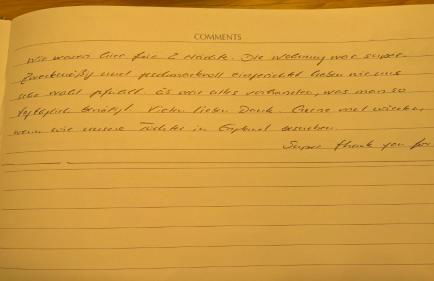 COMMENTS
Wir waren hier für 2 Nächte. Die Wohnung war super
Zweckmäßig und geschmackvoll eingerichtet haben wir uns
sehr wohl gefühlt. Es war alles vorhanden, was man so
tagtäglich benötigt. Vielen lieben Dank. Gerne mal wieder,
wenn wir unsere Tochter in England besuchen.
Super thank you for